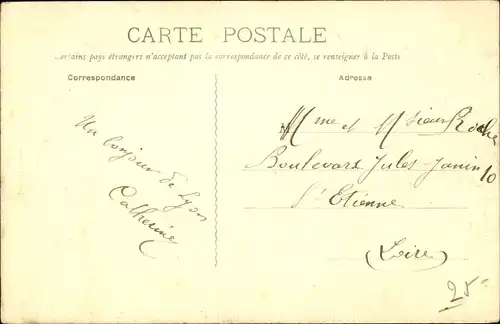 CARTE POSTALE
Certains pays étrangers n'acceptant pas la correspondance de ce côté, se renseigner à la Poste
Correspondance
Adresse
Un bonjour de Lyon
Catherine
Mme et Msieur Roche
Boulevard Jules-Janin 10
St Etienne
(Loire)
25